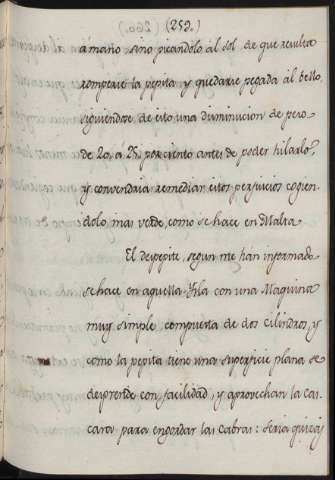 (259.)
a mano, sino picandolo al sol de que resulta
romperse la pepita y quedarse pegada al bello
siguiendose de esto una diminucion de peso
de 20, á 25, por ciento antes de poder hilarlo,
y convendria remediar estos perjuicios cogien
dolo mas verde, como se hace en Malta
El despepite, segun me hán informado
se hace en aquella Ysla con una Maquina
muy simple compuesta de dos cilindros, y
como la pepita tiene una superficie plana se
desprende con facilidad, y aprovechan la cas-
cara para engordar las cabras: seria quizas